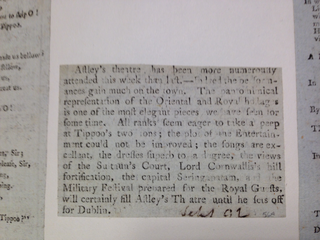 Astley's theatre, has been more numerously
attended this week than last.—Indeed these perform-
ances gain much on the town. The pantomimical
representation of the Oriental and Royal hostages
is one of the most elegant pieces we have seen for
some time. All ranks seem eager to take a peep
at Tippoo's two sons; the plot of the Entertain-
ment could not be improved; the songs are ex-
cellent, the dresses superb to a degree, the views
of the Sultaun's Court, Lord Cornwallis's hill
fortification, the capital Seringapatam, and the
Military Festival prepared for the Royal Guests,
will certainly fill Astley's Theatre until he sets off
for Dublin.
Sept 92